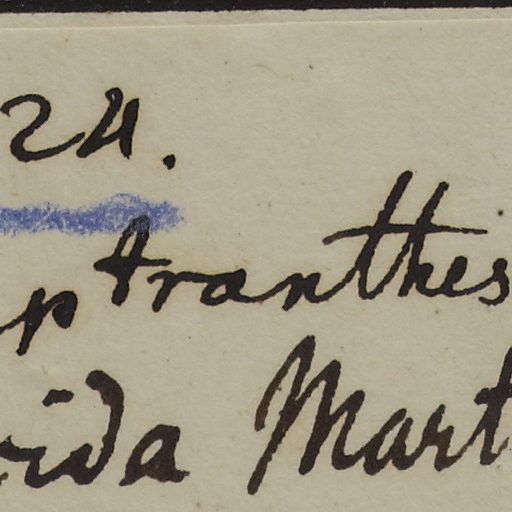 24.
ptranthes
vida Mart